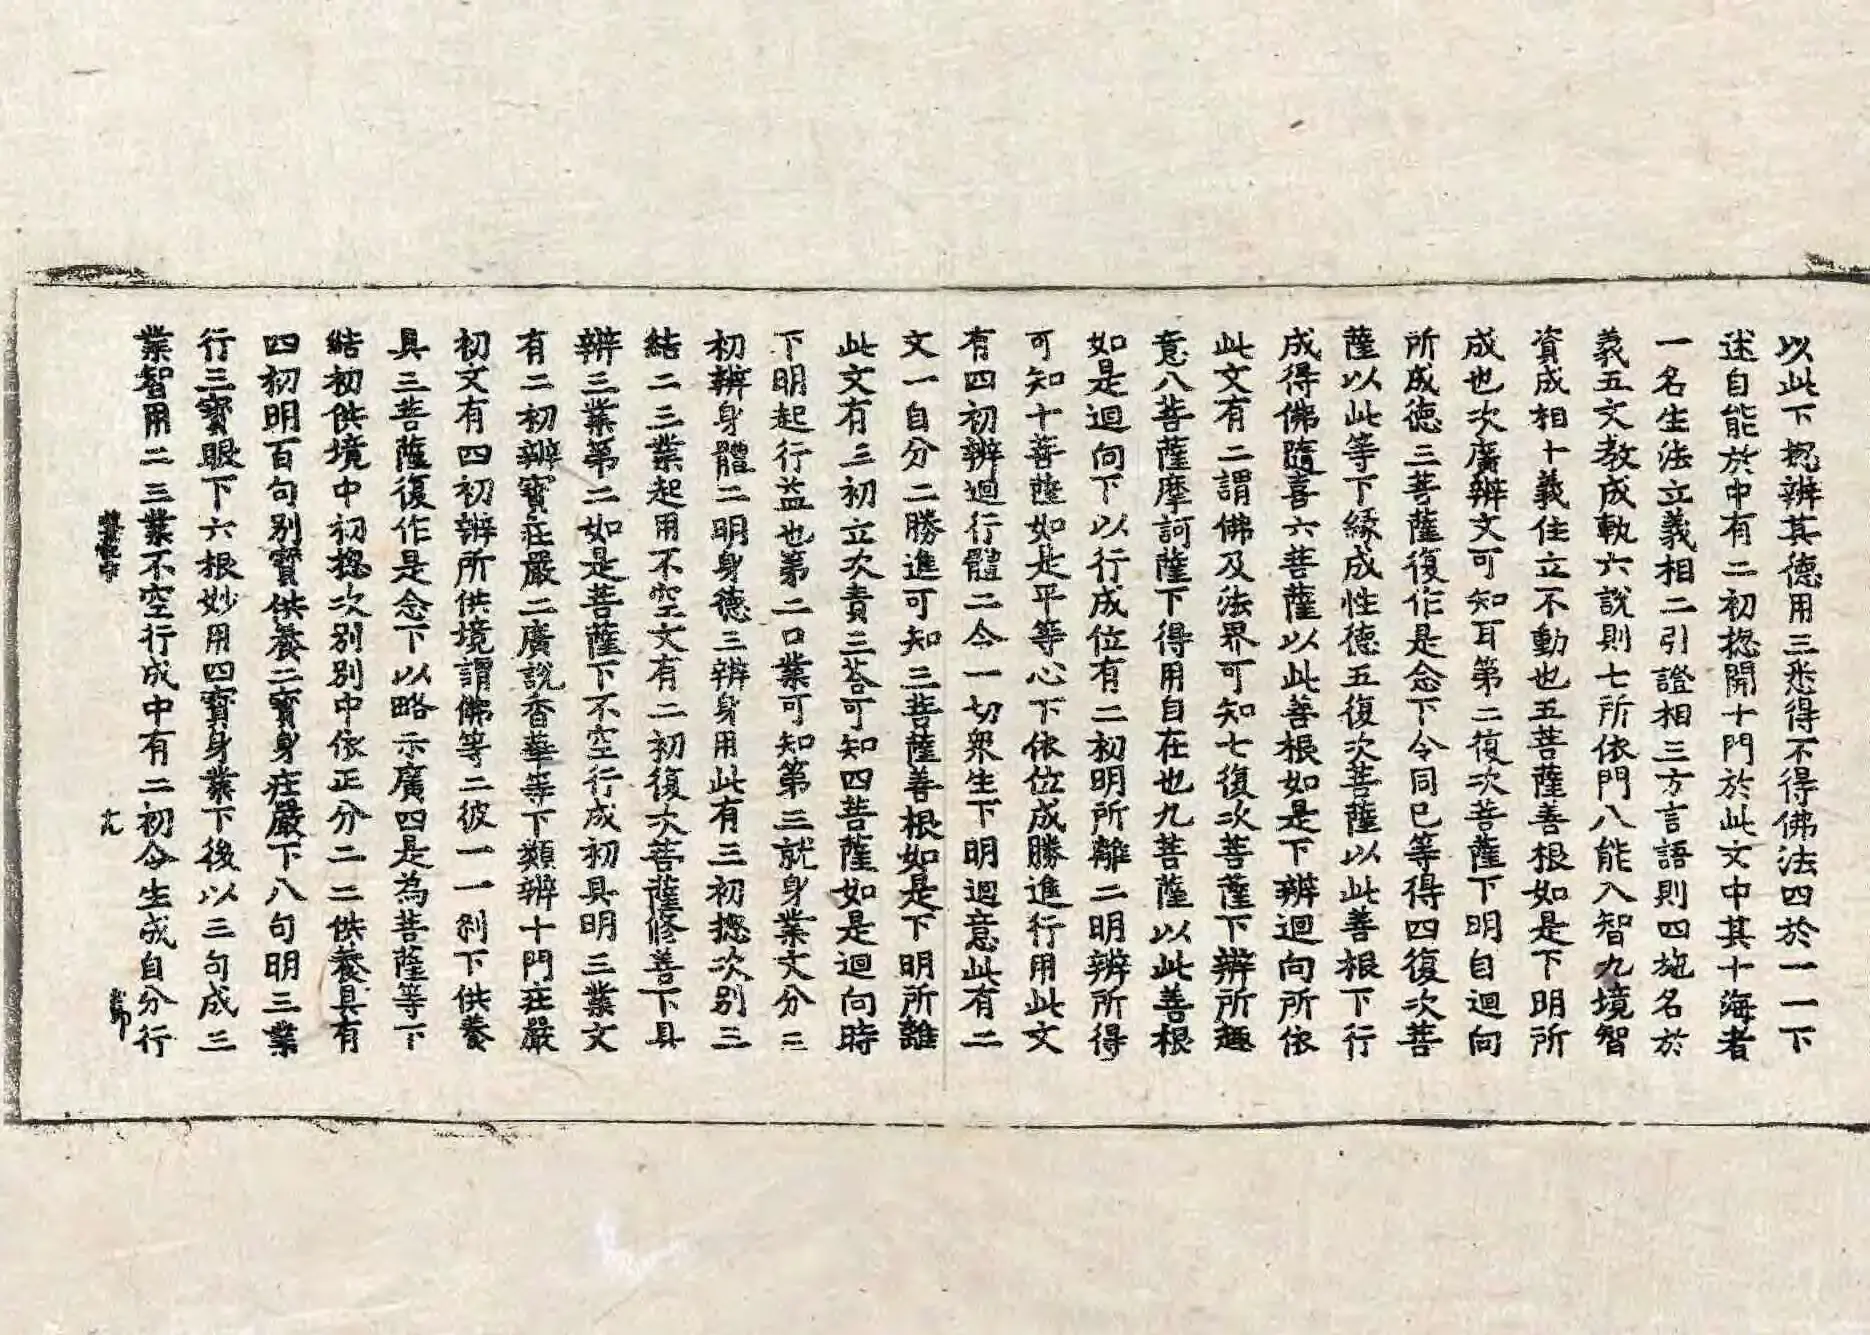 以此下揔辨其德用三悉得不得佛法四於一一下
述自能於中有二初揔開十門於此文中其十海者
一名生法立義相二引證相三方言語則四施名於
義五文教成軌六說則七所依門八能入智九境智
資成相十義住立不動也五菩薩善根如是下明所
成也次廣辨文可知耳第二復次菩薩下明自迴向
所成德三菩薩復作是念下令同已等得四復次菩
薩以此等下緣成性德五復次菩薩以此善根下行
成得佛隨喜六菩薩以此善根如是下辨迴向所依
此文有二謂佛及法界可知七復次菩薩下辨所趣
意八菩薩摩訶薩下得用自在也九菩薩以此善根
如是迴向下以行成位有二初明所離二明辨所得
可知十菩薩如是平等心下依位成勝進行用此文
有四初辨迴行體二令一切衆生下明迴意此有二
文一自分二勝進可知三菩薩善根如是下明所離
此文有三初立次責三荅可知四菩薩如是迴向時
下明起行益也第二口業可知第三就身業文分三
初辨身體二明身德三辨身用此有三初揔次別三
結二三業起用不空文有二初復次菩薩修善下具
辨三業第二如是菩薩下不空行成初具明三業文
有二初辨寶莊嚴二廣說香華等下類辨十門莊嚴
初文有四初辨所供境謂佛等二彼一一剎下供養
具三菩薩復作是念下以略示廣四是為菩薩等下
結初供境中初揔次別別中依正分二二供養具有
四初明百句別寶供養二寶身莊嚴下八句明三業
行三寶眼下六根妙用四寶身業下後以三句成三
業智用二三業不空行成中有二初令生成自分行